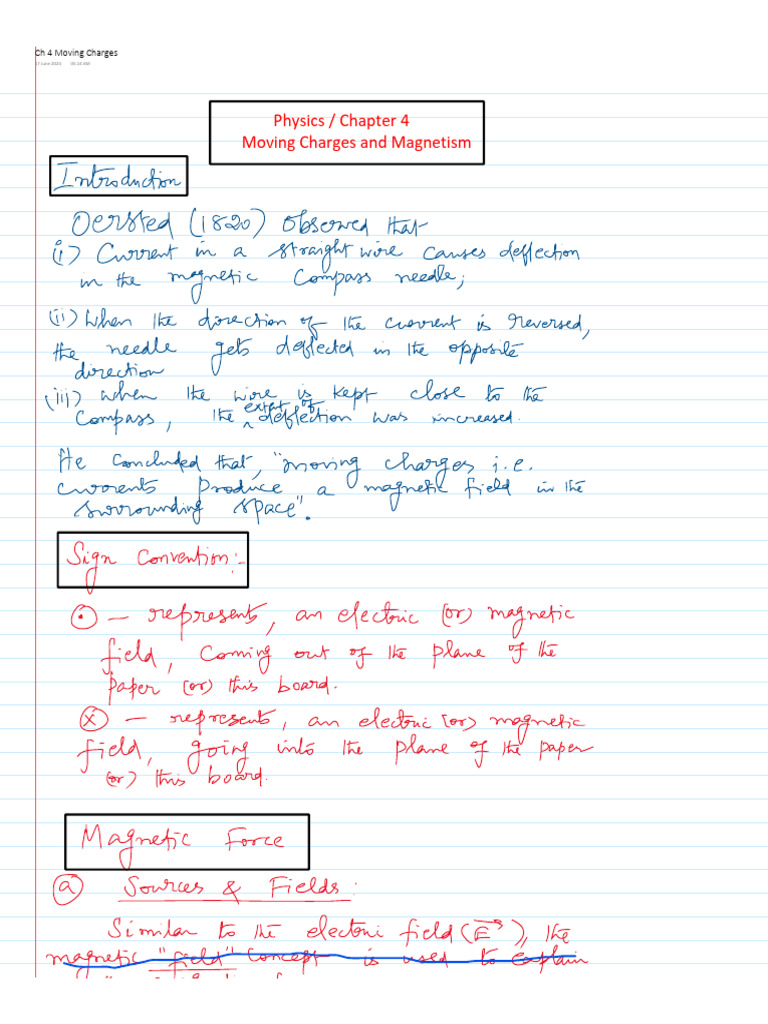 Ch 4 Moving Charges
Physics / Chapter 4
Moving Charges and Magnetism
Introduction
Oersted (1820) observed that
(i) Current in a straight wire causes deflection
in the magnetic compass needle;
(ii) When the direction of the current is reversed,
the needle gets deflected in the opposite
direction
(iii) When the wire is kept close to the
extent of
compass, the ^ deflection was increased.
He concluded that, "moving charges i.e.
currents produce a magnetic field in the
surrounding space".
Sign Convention:-
⊙ – represents, an electric (or) magnetic
field, coming out of the plane of the
paper (or) this board.
ⓧ – represents, an electric (or) magnetic
field, going into the plane of the paper
(or) this board.
Magnetic Force
ⓐ Sources & Fields:
Similar to the electric field (E→), the
magnetic "field" concept is used to explain